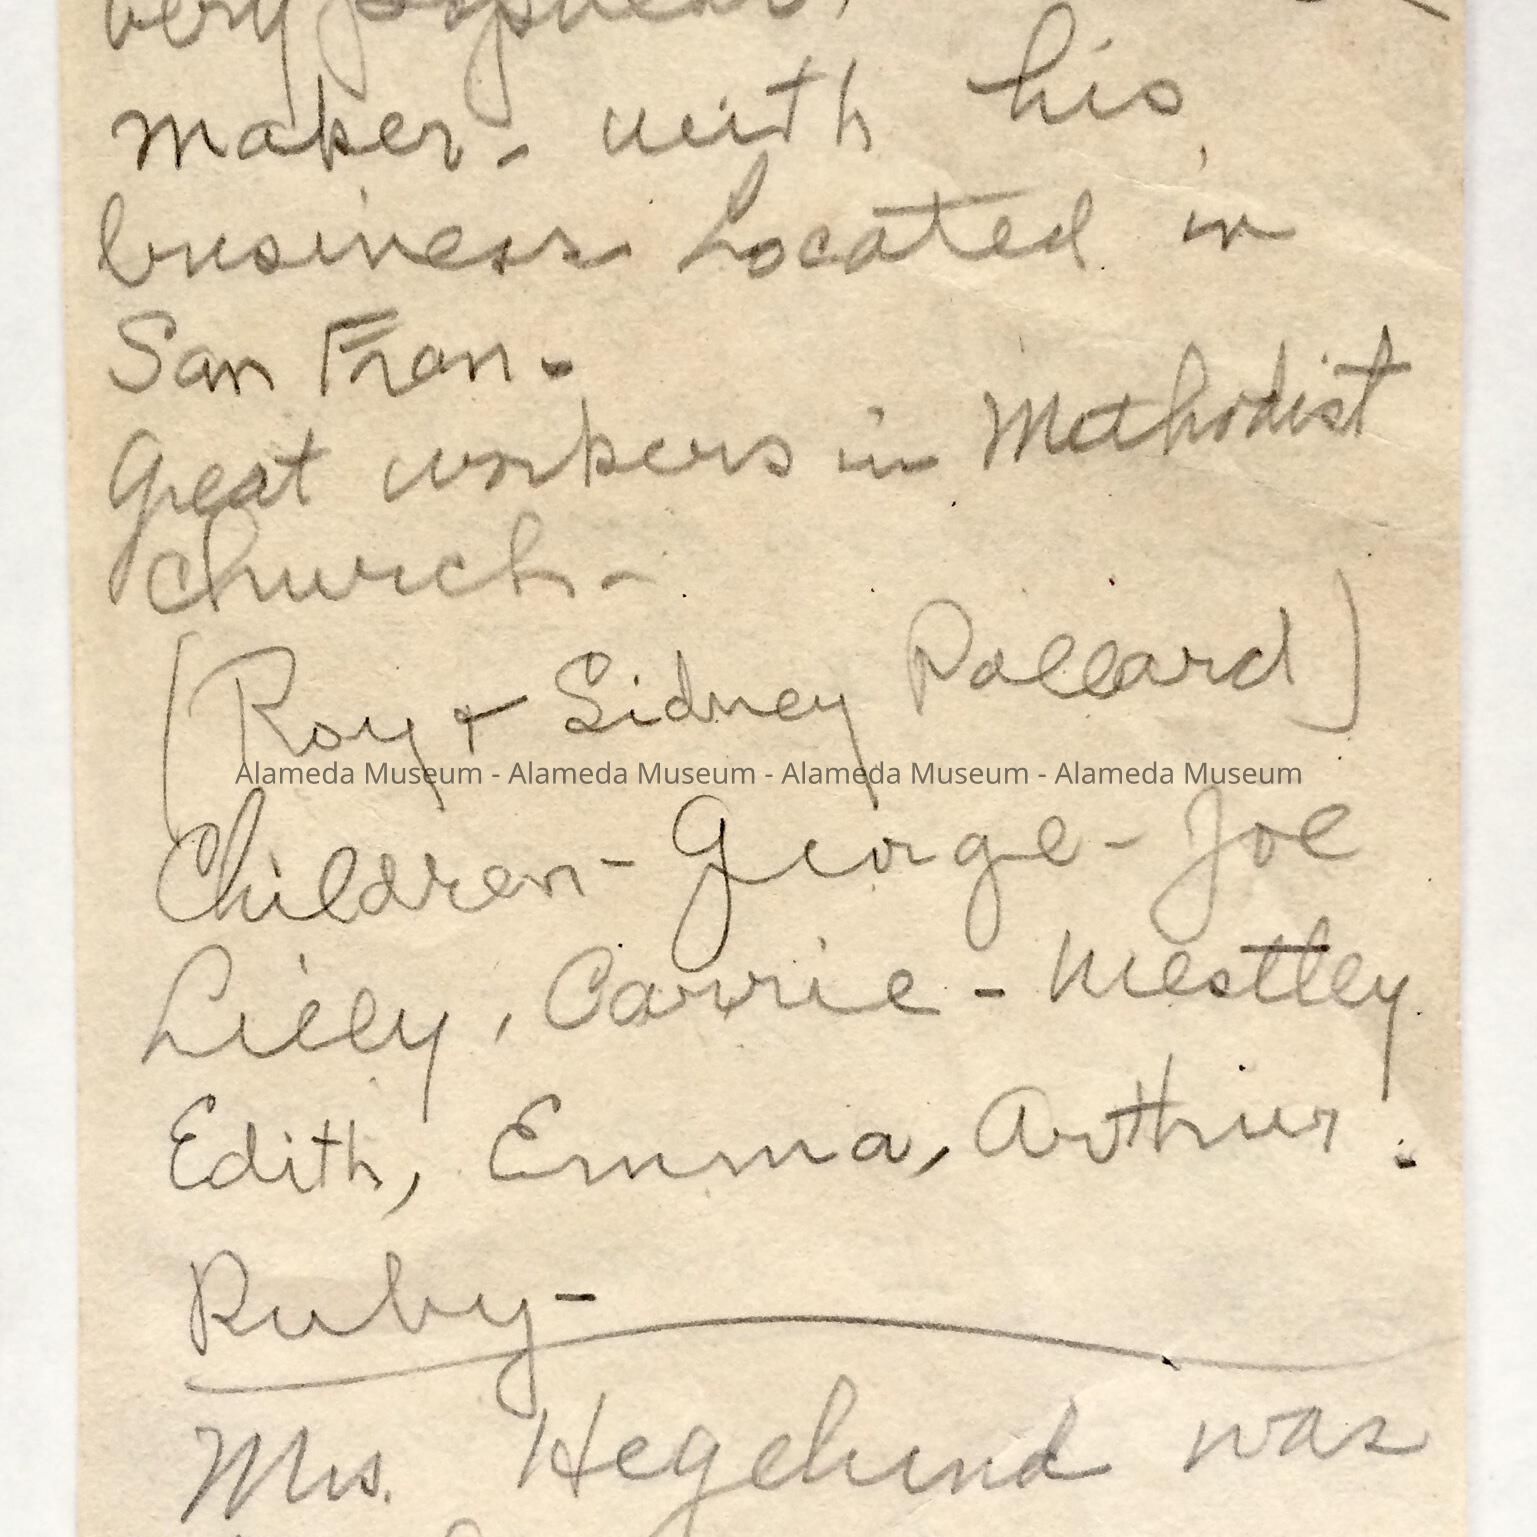 very popular,
maker - with his
business located in
San Fran -
Great workers in Methodist
Church -
[Roy + Sidney Pollard]
Alameda Museum - Alameda Museum - Alameda Museum - Alameda Museum
Children - George - Joe
Lilly, Carrie - Westley
Edith, Emma, Arthur.
Ruby -
Mrs. Hegelund was